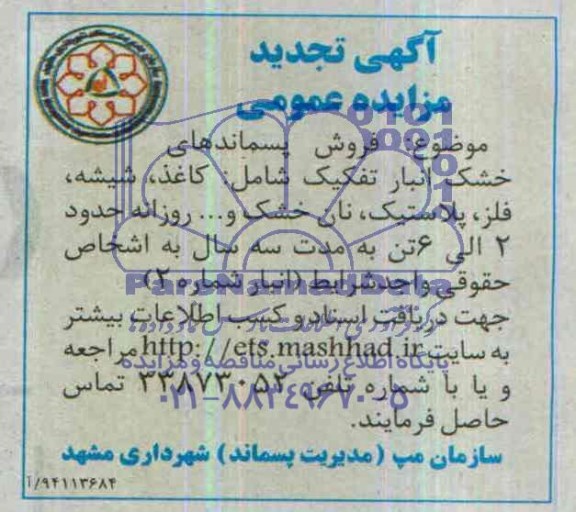 آگهی تجدید
مزایده عمومی
موضوع: فروش پسماندهای
خشک انبار تفکیک شامل: کاغذ، شیشه،
فلز، پلاستیک، نان خشک و... روزانه حدود
۲ الی ۶تن به مدت سه سال به اشخاص
حقوقی واجدشرایط (انبار شماره ۲)
جهت دریافت اسناد و کسب اطلاعات بیشتر
به سایت http://ets.mashhad.ir مراجعه
و یا با شماره تلفن ۳۳۸۷۳۰۵۲ تماس
حاصل فرمایند.
سازمان مپ (مدیریت پسماند) شهرداری مشهد
۹۴۱۱۳۶۸۴/آ
0101
0001
ParsNamadData
پایگاه اطلاع رسانی مناقصه و مزایده
۰۲۱-۸۸۳۴۹۶۷۰-۵